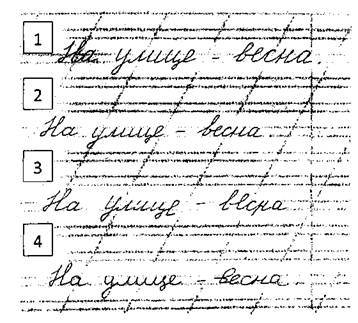 1
На улице - весна.
2
На улице - весна.
3
На улице - весна
4
На улице - весна.